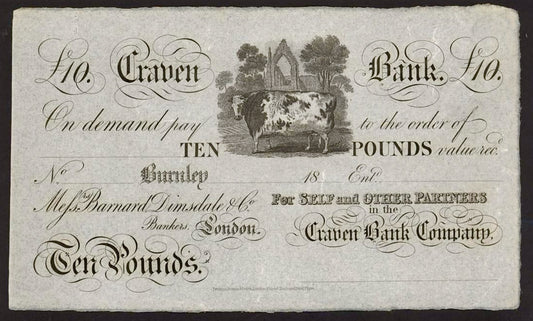 £10. Craven Bank. £10.
On demand pay to the order of
TEN POUNDS value rec.d
No Burnley 18 Ent.
Mess.rs Barnard Dimsdale & Co.
Bankers, London.
For SELF and OTHER PARTNERS
in the
Craven Bank Company.
Ten Pounds.